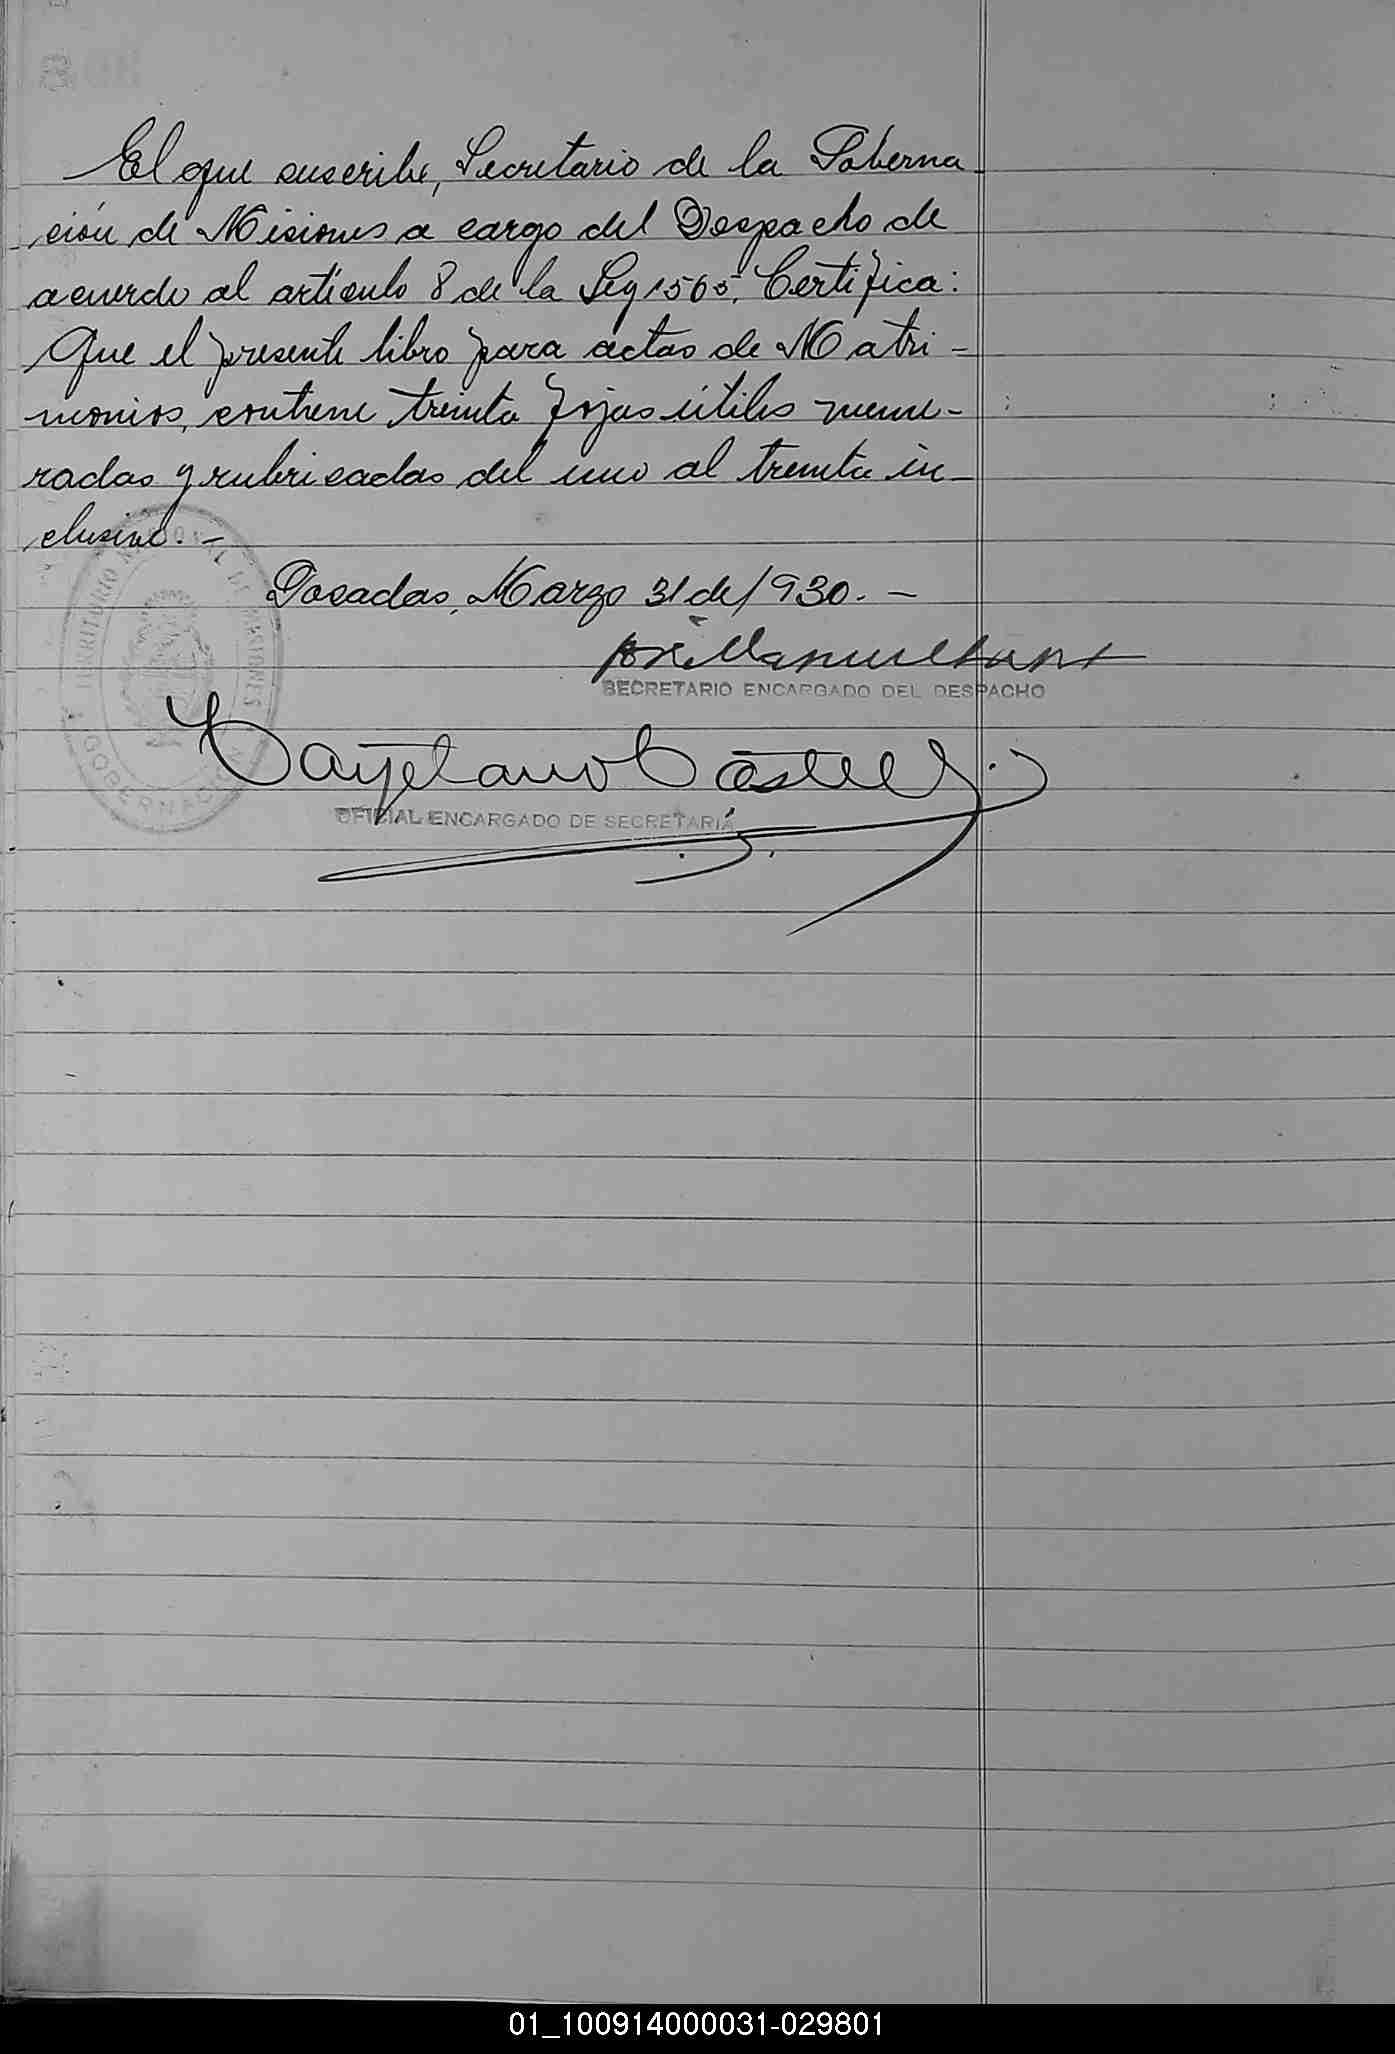 El que suscribe, Secretario de la Goberna
ción de Misiones a cargo del Despacho de
acuerdo al artículo 8 de la Ley 1565, Certifica:
Que el presente libro para actas de Matri-
monios, contiene treinta fojas útiles nume-
radas y rubricadas del uno al treinta in-
clusive. -
Posadas, Marzo 31 de 1930. -
José Manuel
SECRETARIO ENCARGADO DEL DESPACHO
Cayetano Castelli
OFICIAL ENCARGADO DE SECRETARIA
TERRITORIO NACIONAL DE MISIONES
GOBERNACION
01_100914000031-029801